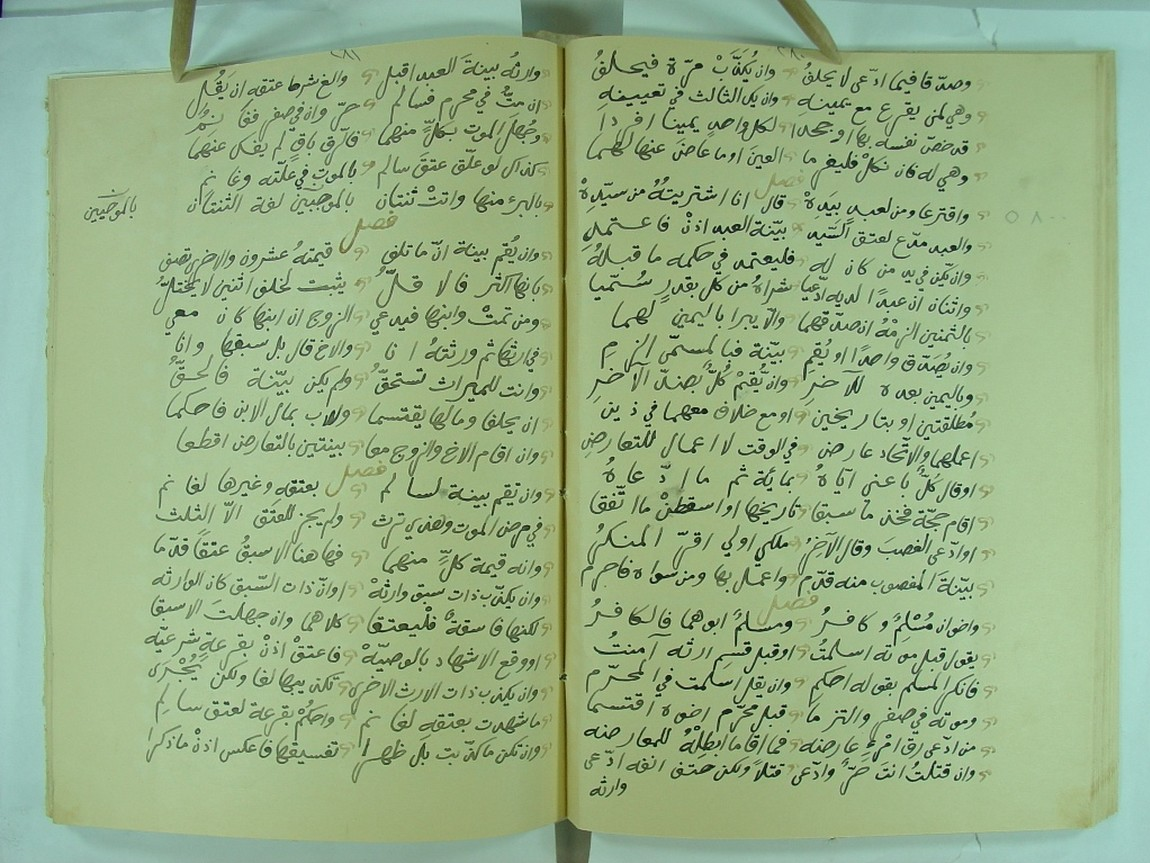 وصدّقا فيما ادّعى لا يحلفُ وان يُكذّبْ مرّة فيحلفُ
وهي لمن يقرع مع يمينهِ وان يك الثالث في تعيينهِ
قد خصّ نفسه بها او جحدا لكل واحدٍ يمينا افردا
وهي له فان نكلْ فليغرما العينَ او ما عاضَ عنها لهما
فصل
واقترعا ومن لعبدٍ بيَدِهْ قال انا اشتريتُهُ من سيّدِهْ
والعبد مدّعٍ لعتق السّيدِ بيّنة العبد اذنْ فاعتمدِ
وان يكن في يد من كان له فليعتمد في حكمه ما قبلهُ
واثنان ان عبدًا لديه ادّعيا شراهُ من كل بقدرٍ سُمّيا
بالثمنين الزمْهُ ان صدّقهما والّا يبرا باليمين لهما
وان يُصَدّق واحدًا او يُقمِ بيّنة فبالمسمّى الزمِ
وباليمين بعده للآخرِ وان يُقمْ كلٌّ بصدّ الآخرِ
مُطلقتين او بتاريخين او مع خلافٍ معهما في ذين
اعملهما والاتّحاد عارض في الوقت لا اعمال للتعارضِ
او قال كلٌّ باعني ايّاهُ بمايةٍ ثم ما ادّعاهُ
اقام حجّة فخذ ما سبقا تاريخها او اسقطنْ ما اتّفقا
او ادّعى الغصبَ وقال الآخرُ ملكي او لي اقرّ المنكرُ
بيّنةَ المغصوب منه قدّمِ واعمل بها ومن سواه فاحرمِ
فصل
واخوان مُسْلمٌ وكافرُ ومسلمٌ ابوهما فالكافرُ
يقول قبل موته اسلمتُ او قبل قسْمِ ارثه آمنتُ
فانكر المسلم بقوله احكمِ وان يقل اسلمت في المحرّمِ
وموته في صفرٍ والتزما قبل محرّم اخوه اقتسما
من ادّعى رقّ امرْءٍ عارضه في اقاما ابطلْهُ للمعارضه
وان قتلتُ انتَ حرٌّ وادّعى قتلاً ولكن حتف انفه ادّعى
وارثه
وارثُه بينةَ العبد اقبل والغ شرط عتقه ان يَقُل
ان متُّ في محرم فسالم حرّ وان في صفر فغانمُ
وجُهلَ الموت بكلٍّ منهما فالرّق باقٍ لم يفك عنهما
كذاك لو علّق عتق سالم بالموت في علّته وغانم
بالبرء منها واتتْ ثنتان بالموجَبينِ لغة الثنتان
بالموجَبين
فصل
وان يُقم بينة انّ ما تلف قيمتهُ عشرون والاخرى تصف
بانها اكثر فالاقلّ يثبت لخلف اثنين لا يختلُّ
ومن تمتْ وابنها فيدعي الزوج ان ابنها كان معي
في ارثها ثم ورثتهُ انا والاخ قال بل سبقها وانا
وانت للميراث تستحقُّ ولم يكن بيّنة فالحقُّ
ان يحلفا ومالها يقتسما وللاب بمال الابن فاحكما
وان اقام الاخ والزوج معا بينتين بالتعارض اقطعا
فصل
وان تقم بينة لسالم بعتقه وغيرها لغانم
في مرض الموت وهندي ترث ولم يجز للعتق الّا الثلث
وانه قيمة كلٍّ منهما فهاهنا الاسبقُ عتقًا قدّما
وان يكذّب ذات سبق وارثهْ او انّ ذات السّبق كان الوارثه
لكنها فاسقةٌ فلْيعتقا كلاهما وان جهلتَ الاسبقا
او وقع الاشهاد بالوصيّهْ فاعتقْ اذنْ بقرعةٍ شرعيّه
وان يكذب ذات الارث الاخرى تكذيبها لغا ولكن يُجْرى
ما شهدت بعتقهِ لغانم واحكمْ بقرعة لعتق سالِم
وان تكن ما كذّبت بل ظهرا تفسيقها فاعكس اذنْ ما ذكرا